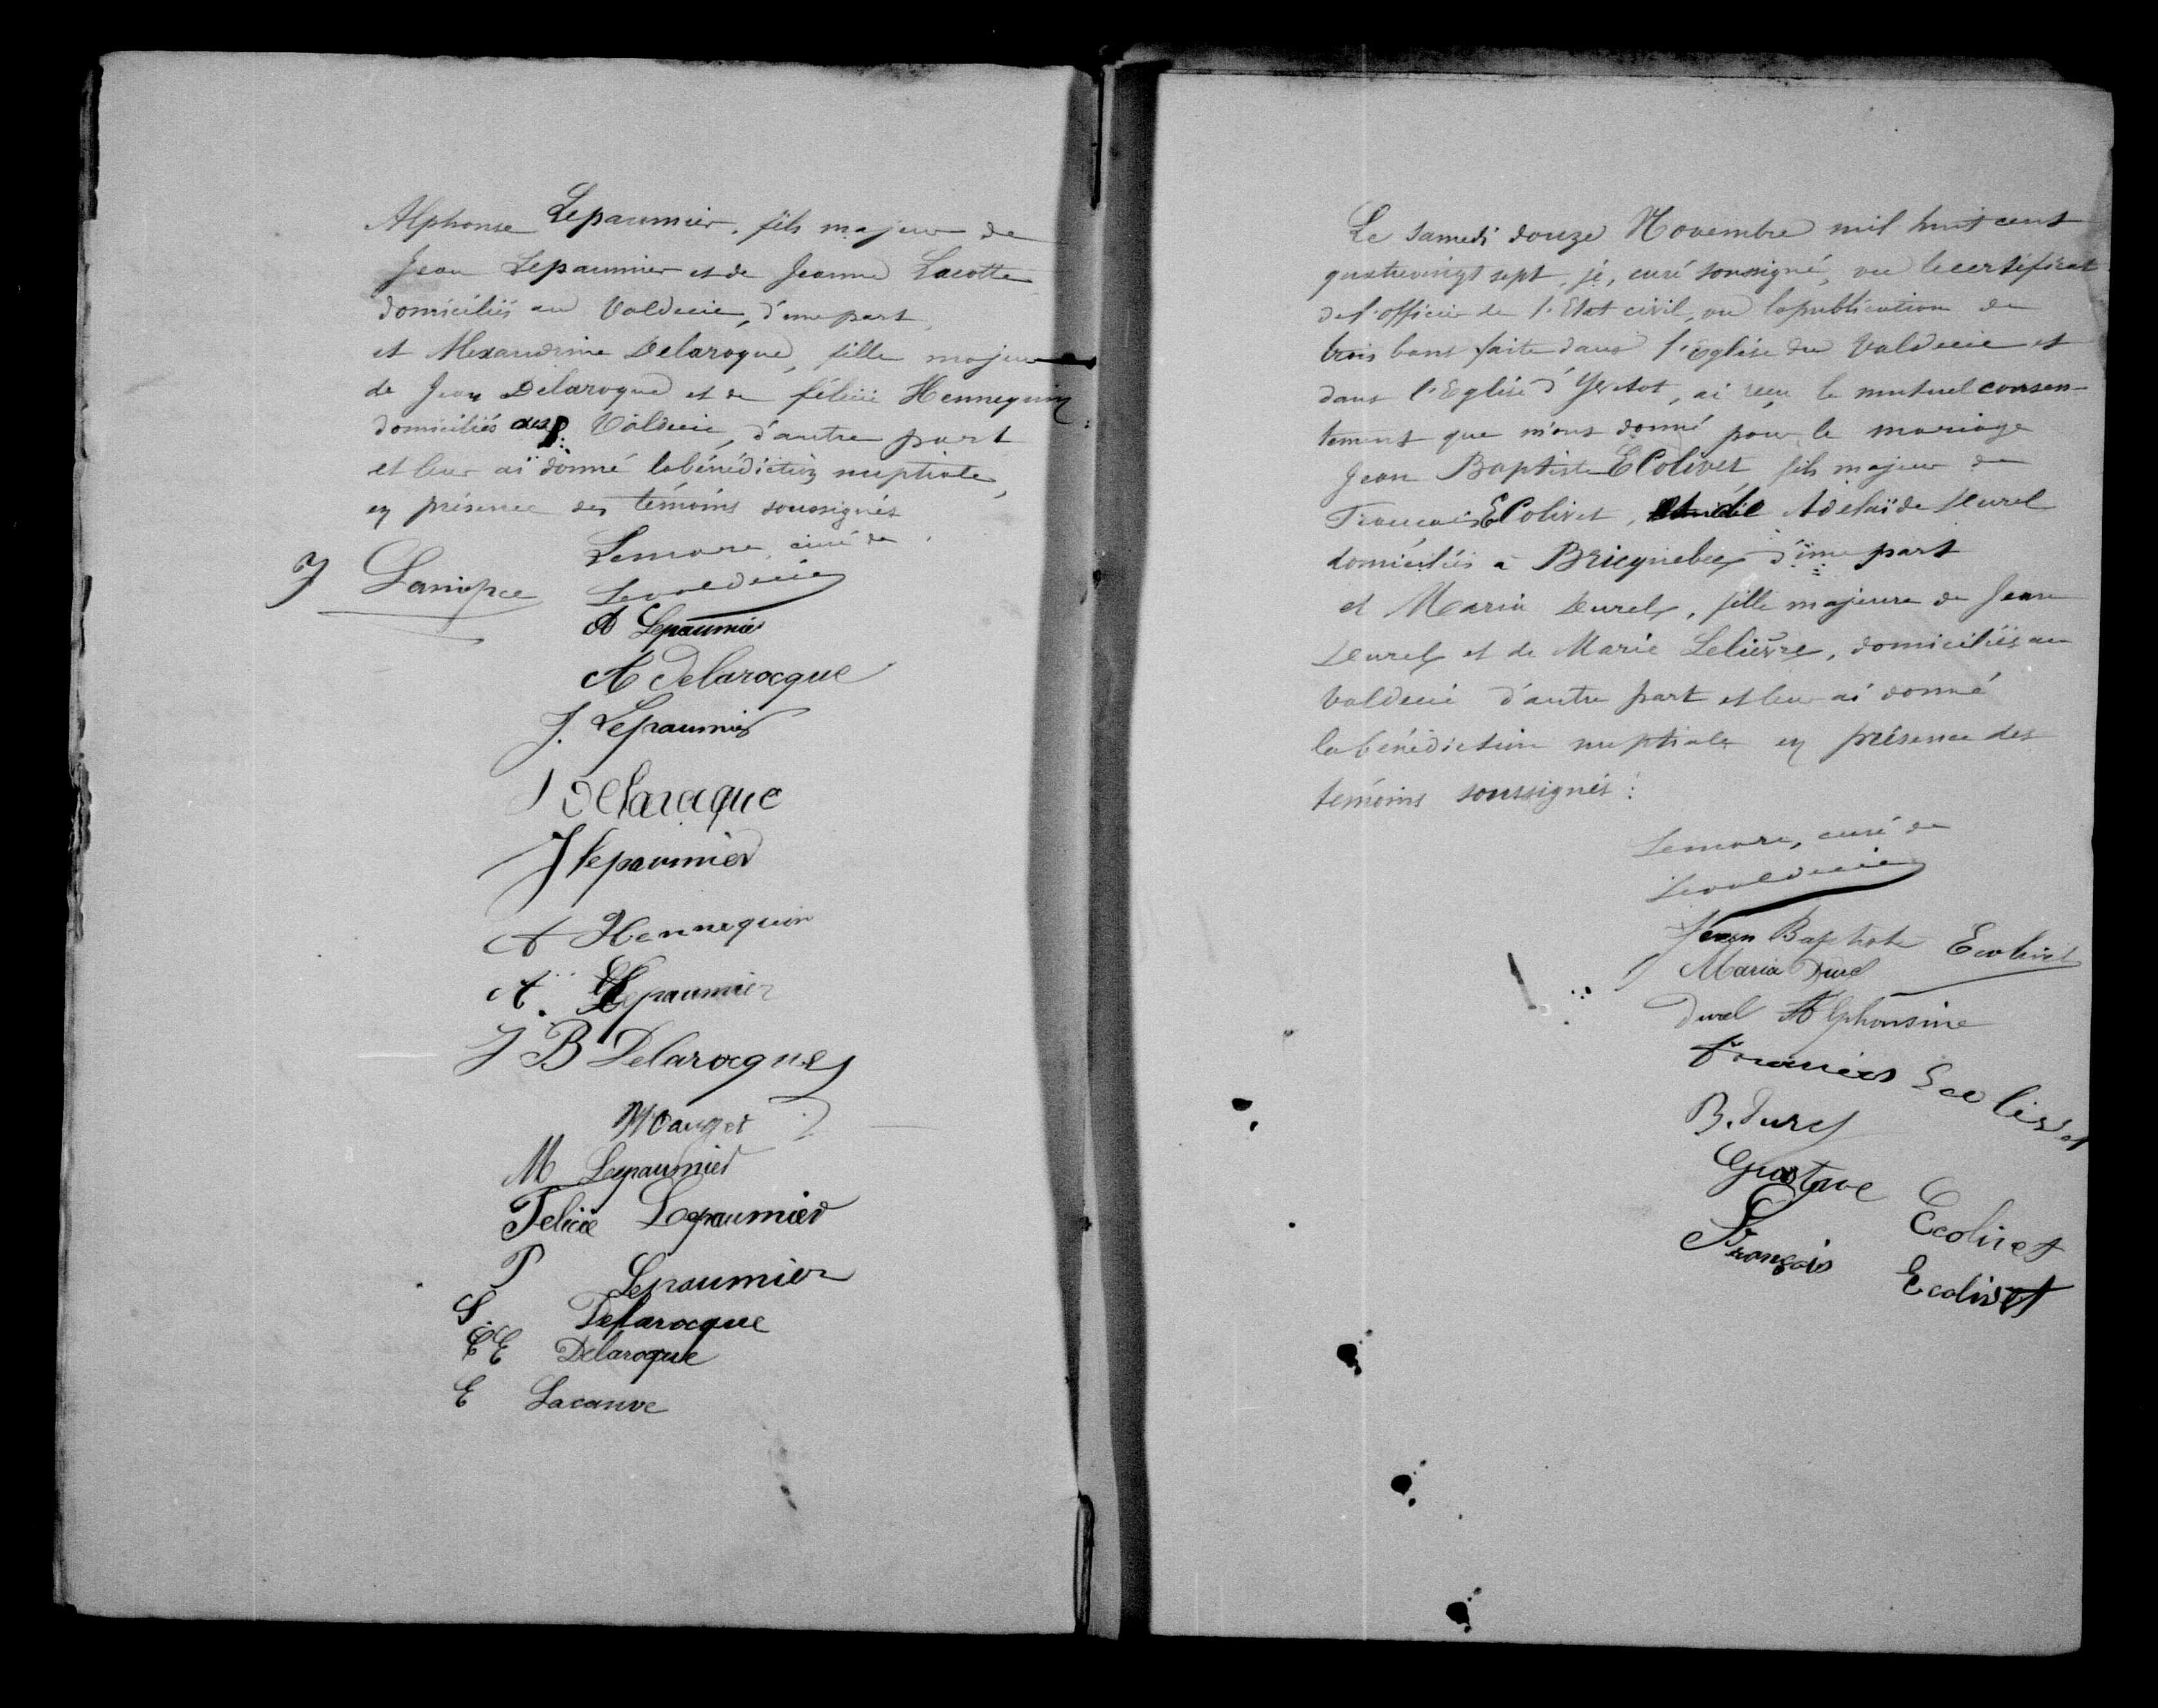 Alphonse Lepaumier, fils majeur de
Jean Lepaumier et de Jeanne Lacotte
domiciliés au Valdecie, d'une part,
et Alexandrine Delaroque, fille majeure
de Jean Delaroque et de félicie Hennequin
domiciliés au Valdecie, d'autre part
et leur ai donné la bénédiction nuptiale,
en présence des témoins soussignés
Lemare, curé de
Levaldecie
J
A Lepaumier
A Delarocque
J. Lepaumier
J Delarocque
J lepaumier
A Hennequin
A Lepaumier
J B Delarocque
Mauger
M Lepaumier
Felicie Lepaumier
P Lepaumier
S Delarocque
E Delaroque
E Lacauve
Le samedi douze Novembre mil huit cent
quatrevingt sept, je, curé soussigné, vu le certificat
de l'officier de l'Etat civil, vu la publication de
trois bans faite dans l'Eglise du Valdecie et
dans l'Eglise d'Yvetot, ai reçu le mutuel consen-
tement que m'ont donné pour le mariage
Jean Baptiste EColivet fils majeur de
François EColivet, et de Adelaïde Durel
domiciliés à Bricquebec d'une part
et Maria Durel, fille majeure de Jean
Durel et de Marie Lelièvre, domiciliés au
Valdecie d'autre part et leur ai donné
la bénédiction nuptiale en présence des
temoins soussignés :
Lemare, curé de
Levaldecie
Jean Baptiste Ecolivet
Maria Durel
Durel Alphonsine
Francois Ecolivet
B. Durel
Gustave Ecolivet
François Ecolivet